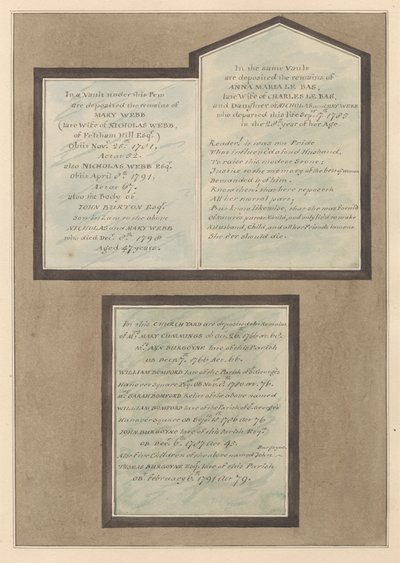 In a Vault under this Pew
are deposited the remains of
MARY WEBB
(late Wife of NICHOLAS WEBB,
of Feltham Hill Esqr.)
Obiit Novr. 25th 1781,
Aetat 52.
also NICHOLAS WEBB Esqr.
Obiit April 8th 1791,
Aetat 67.
also the body of
JOHN BURTON Esqr.
Son in Law to the above
NICHOLAS and MARY WEBB
who died Decr. 8th 1798
Aged 47 years.
In the same Vault
are deposited the remains of
ANNA MARIA LE BAS,
late Wife of CHARLES LE BAS,
and Daughter of NICHOLAS and MARY WEBB
who departed this life 17th
in the 28th year of her Age.
Reader! it was no Pride
That influenced a fond Husband,
To raise this modest Stone;
Justice to the memory of the best of Women
Demanded it of him.
Know then, that here reposeth
All her mortal part,
But know likewise, that she was form'd
Of Nature's purest Mould, and only liv'd to make
A Husband, Child, and all her Friends lament
She e'er should die.
In this CHURCH YARD are deposited the Remains
of Mrs. MARY CUMMINGS
Mrs. ANN BURGOYNE late of this Parish
OB Decr. 7th 1766 Aet. 66.
WILLIAM BOMFORD late of the Parish of St. George's
Hanover Square Esqr. OB Novr. 1780 aet. 76.
Mrs. SARAH BOMFORD Relict of the above named
WILLIAM BOMFORD late of the Parish of St. George's
Hanover Square OB 1786 Aet 76
JOHN BURGOYNE late of this Parish Esqr.
OB Decr. 6th 1787 Aet 45.
Also Five Children of the above named John Burgoyne,
THOMAS BURGOYNE Esqr. late of this Parish
OBt. February 6th 1791 Aet 79.